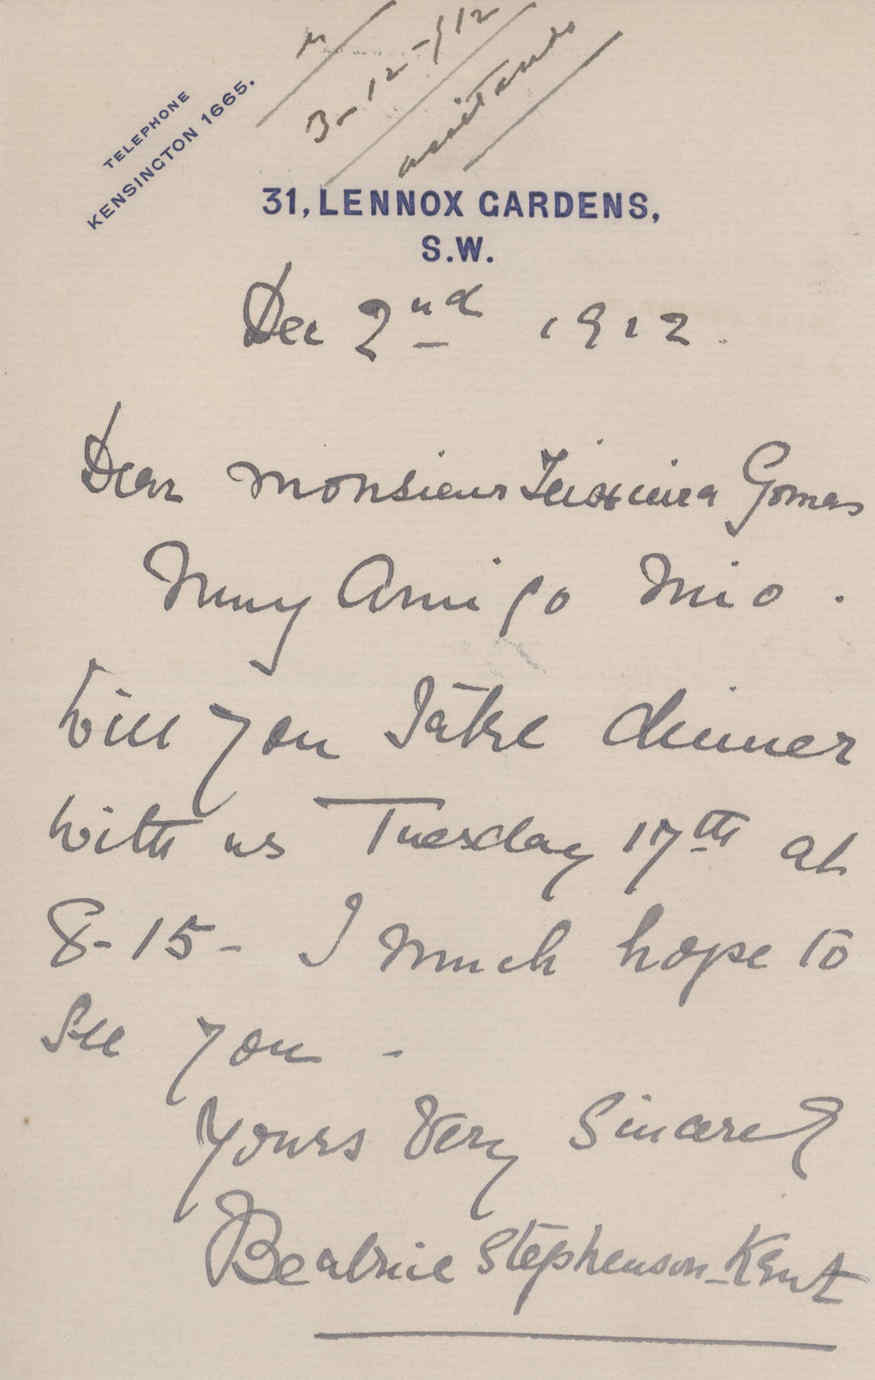 3-12-912
TELEPHONE
KENSINGTON 1665.
31, LENNOX GARDENS,
S.W.
Dec 2nd 1912.
Dear Monsieur Teixeira Gomes
Muy Amigo Mio.
Will you take dinner
with us Tuesday 17th at
8-15- I much hope to
see you -
Yours Very Sincerely
Beatrice Stephenson-Kent